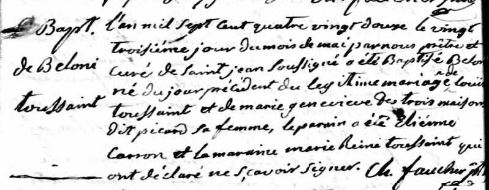 Bapt. l'an mil sept cent quatre vingt douze le vingt
troisième jour du mois de mai par nous prêtre et
de Beloni curé de Saint jean soussigné a été Baptisé Beloni
né du jour précédent du legitime mariage de Louis
toussaint toussaint et de marie genevieve des trois maisons
dit picard sa femme, le parain a été Etiénne
Carron et la maraine marie Reine toussaint qui
ont déclaré ne sçavoir signer. Ch. faucher ptr